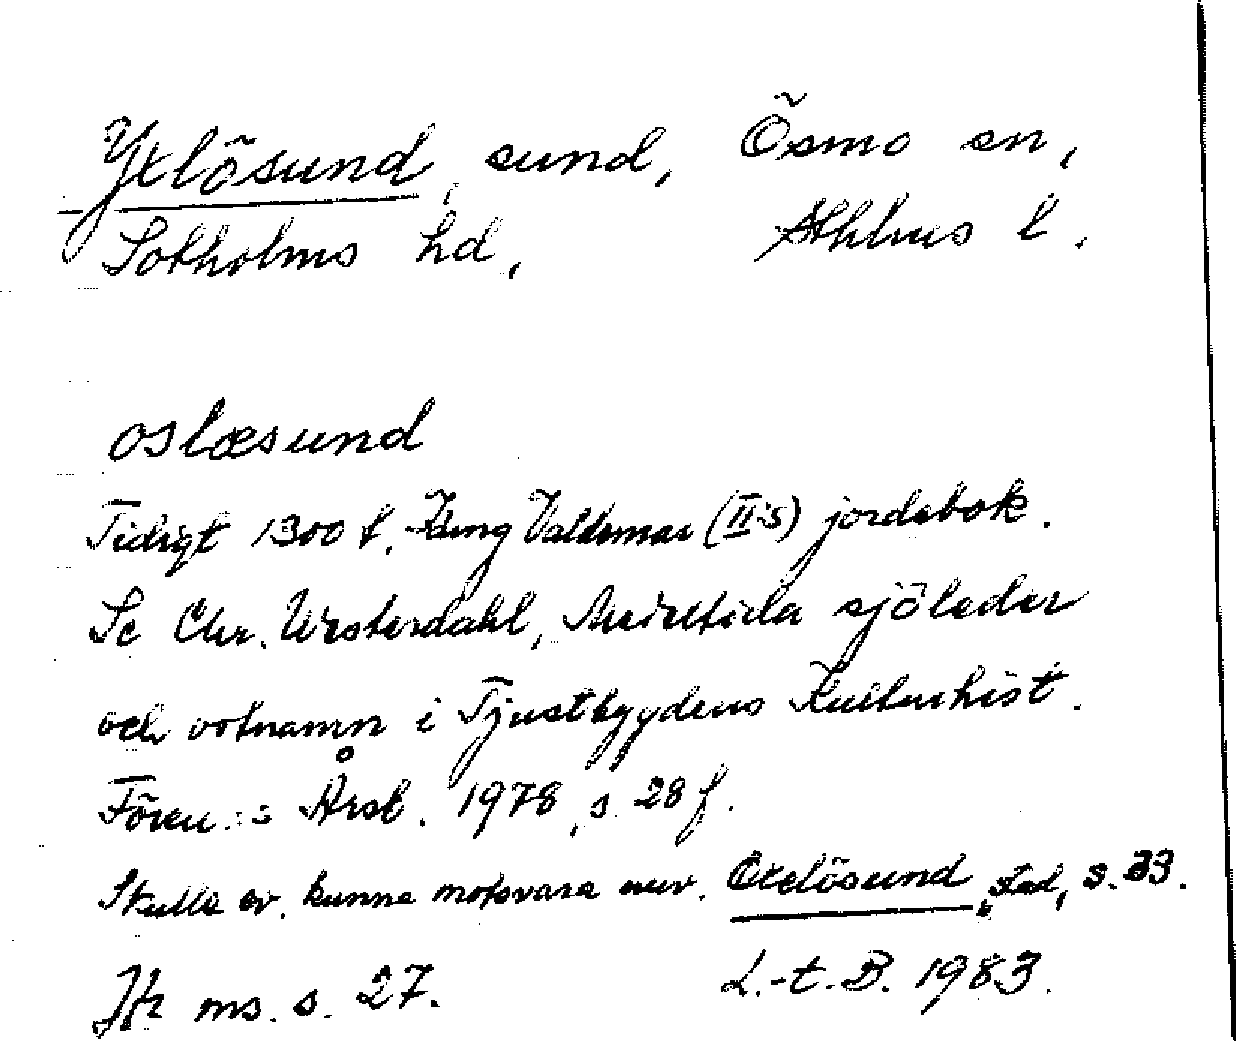 Yxlösund, sund, Ösmo sn,
Sotholms hd, Sthlms l.
oslæsund
Tidigt 1300 t. Kung Valdemar (II:s) jordebok.
Se Chr. Westerdahl, Medeltida sjöleder
och ortnamn i Tjustbygdens Kulturhist.
Fören:s Årsb. 1978, s. 28 f.
Skulle ev. kunna motsvara nuv. Oxelösund, stad, s. 33.
Jfr ms. s. 27. L.-t. B. 1983.